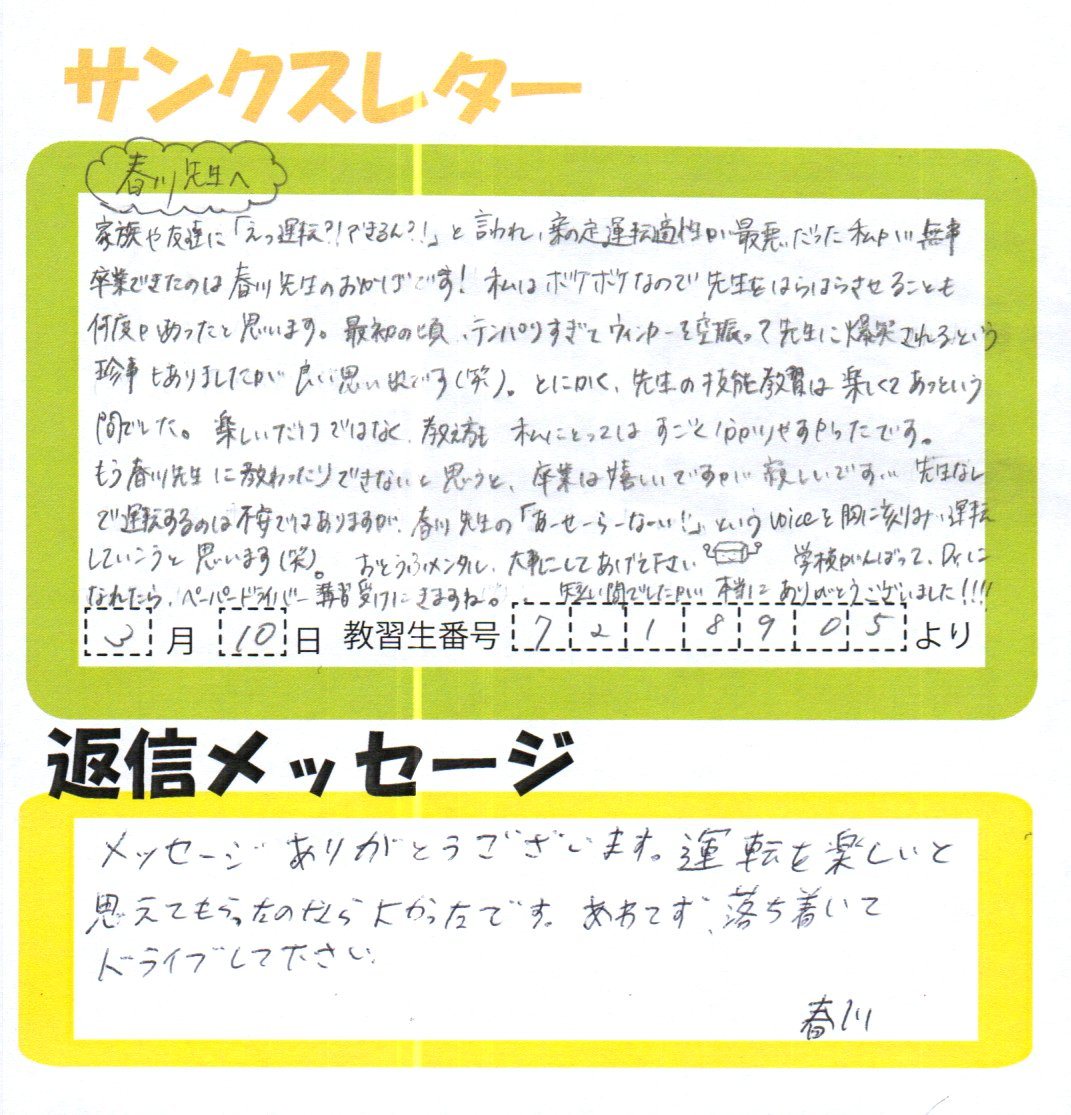 サンクスレター
春川先生へ
家族や友達に「えっ運転?!できるん?!」と言われ、案の定運転適性が最悪だった私が無事
卒業できたのは春川先生のおかげです! 私はボケボケなので先生をはらはらさせることも
何度かあったと思います。最初の頃、テンパりすぎてウィンカーを空振って先生に爆笑されるという
珍事もありましたが良い思い出です(笑)。とにかく、先生の技能教習は楽しくてあっという
間でした。楽しいだけではなく、教え方も私にとってはすごく分かりやすかったです。
もう春川先生に教わったりできないと思うと、卒業は嬉しいですが寂しいです… 先生なし
で運転するのは不安ではありますが、春川先生の「あーせーらーなーい!」というvoiceを胸に刻み運転
していこうと思います(笑)。 おとうふメンタル、大事にしてあげて下さい 学校がんばって、Dr.に
なれたら、ペーパードライバー講習受けにきますね。 短い間でしたが本当にありがとうございました!!!!
3月10日 教習生番号 7218905 より
返信メッセージ
メッセージありがとうございます。運転を楽しいと
思えてもらったのなら よかったです。あわてず、落ち着いて
ドライブして下さい
春川